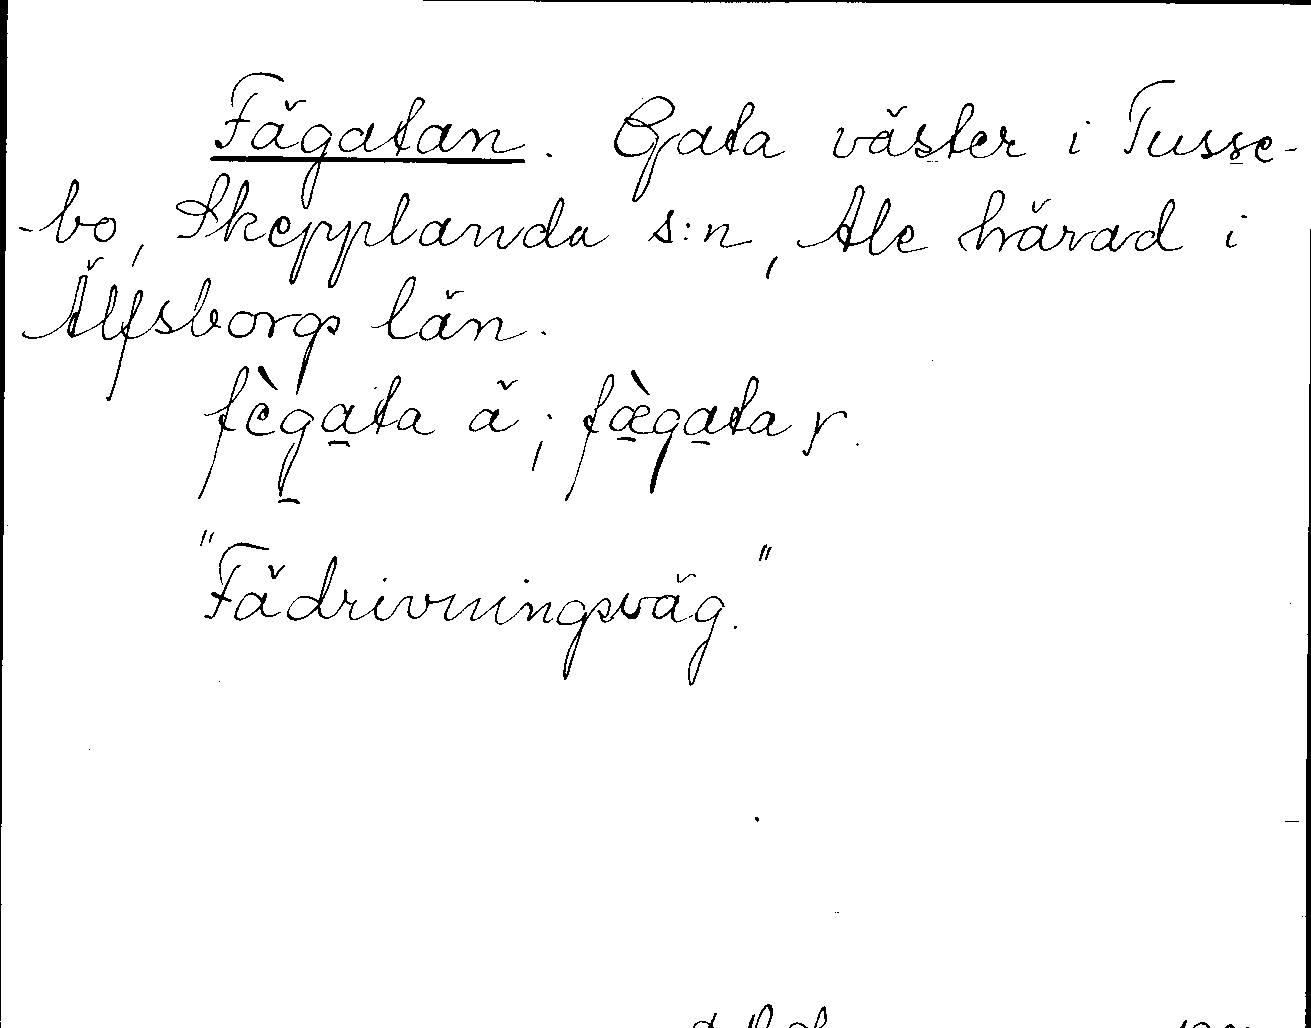 Fägatan. Gata väster i Tusse-
-bo, Skepplanda s:n, Ale härad i
Älfsborgs län.
fègata ä; fæ̀gata y.
"Fädrivningsväg."